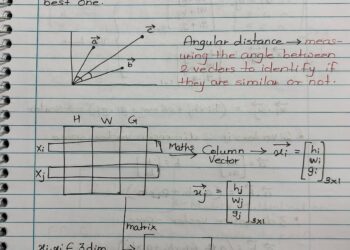 best one.
a
c
b
Angular distance → meas-
uring the angle between
2 vectors to identify if
they are similar or not.
H W G
xi
Maths → Column → xi = [hi wi gi]3x1
Vector
xj
xj = [hj wj gj]3x1
matrix
xi, xj ∈ 3 dim